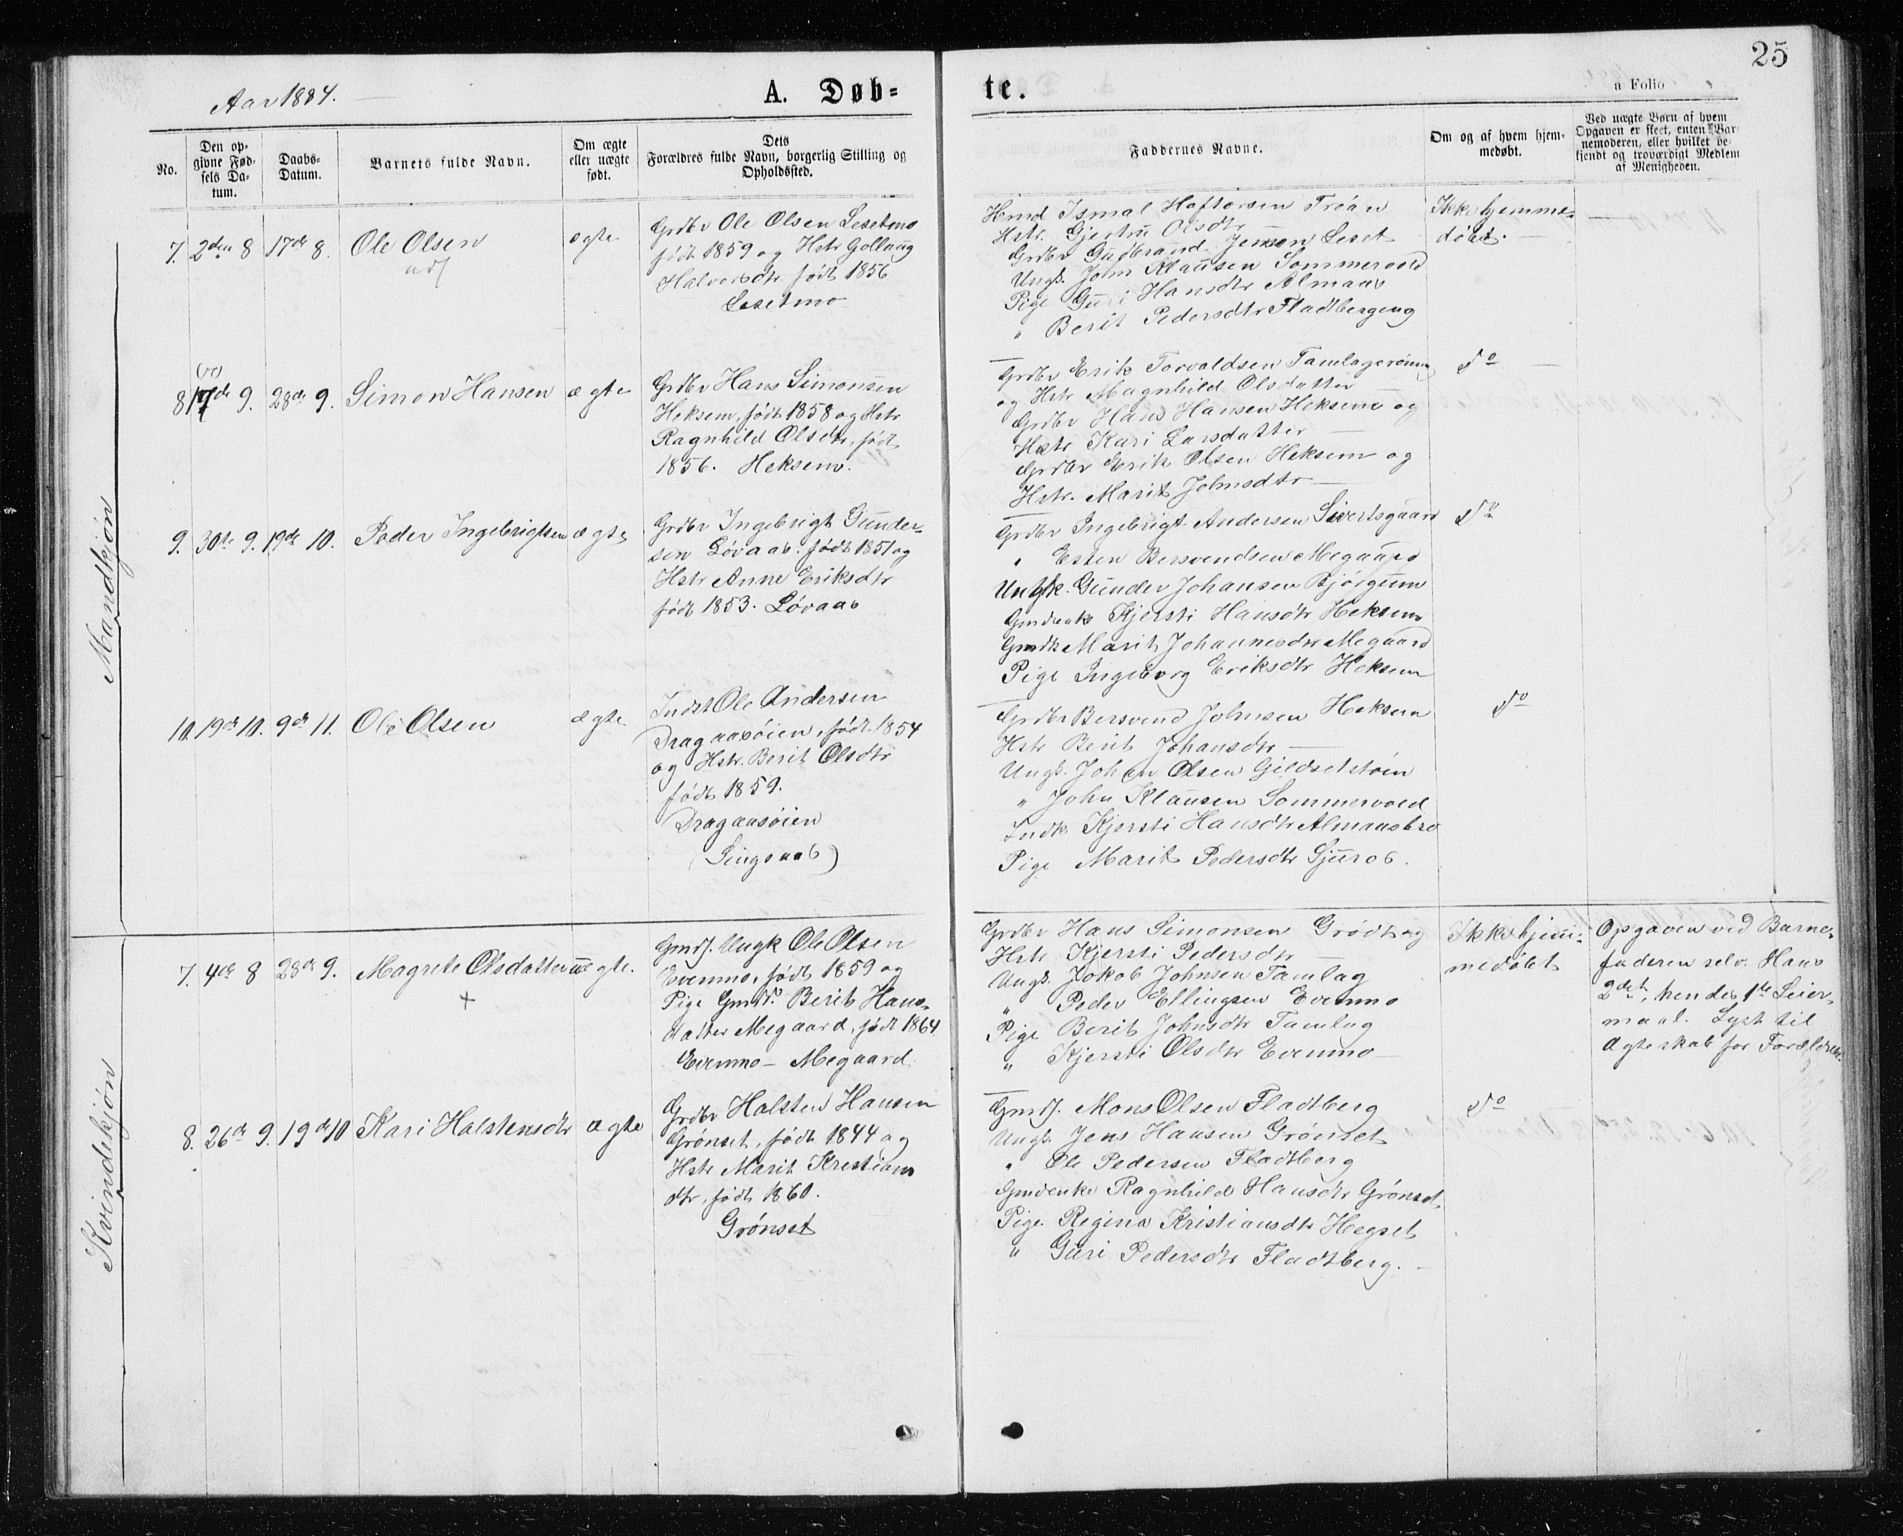 25
Aar 1884.
A. Døb-
te.
a Folio
No.
Den op-
givne Fød-
sels Da-
tum.
Daabs-
Datum.
Barnets fulde Navn.
Om ægte
eller uægte
født.
Dets
Forældres fulde Navn, borgerlig Stilling og
Opholdssted.
Faddernes Navne.
Om og af hvem hjem-
medøbt.
Ved uægte Børn af hvem
Opgaven er skeet, enten Bar-
nemoderen, eller hvilket be-
kjendt og troværdigt Medlem
af Menigheden.
Mandkjøn
7. 2den 8 17de 8. Ole Olsen
ægte
Grdbr Ole Olsen Lesetmo
født 1859 og Hstr Gollaug
Halvorsdtr født 1856
Lesetmo
Hmd Ismal Haftorsen Trøan
Hstr. Gjertru Olsdtr
Grdbr Gudbrand Jensen Leset
Ungk. John Klausen Sommervold
Pige Guri Hansdtr Almaas
" Berit Pedersdtr Fladtbergeng
Ikke hjemme-
døbt.
8 17de 9. 28de 9. Simon Hansen
ægte
Grdbr Hans Simonsen
Heksem, født 1858 og Hstr
Ragnhild Olsdtr, født
1856. Heksem.
Grdbr Erik Torvaldsen Tamlagsrønn
og Hstr Magnhild Olsdatter
Grdbr Hans Hansen Heksem og
Hstr Kari Larsdatter
Grdbr Erik Olsen Heksem og
Hstr. Marit Johnsdtr
do
9. 30te 9. 19de 10. Peder Ingebrigtsen
ægte
Grdbr Ingebrigt Gunder-
sen Løvaas. født 1851 og
Hstr Anne Eriksdtr
født 1853. Løvaas
Grdbr Ingebrigt Andersen Sivertsgaard
" Esten Bersvendsen Megaard
Ungk. Gunder Johansen Bjørgum
Gmdenk Kjersti Hansdtr Heksem
Gmdk Marit Johannesdtr Megaard
Pige Ingeborg Eriksdtr Heksem
do
10. 19de 10. 9de 11. Ole Olsen
ægte
Indst Ole Andersen
Dragaasøien, født 1854
og Hstr. Berit Olsdtr
født 1859.
Dragaasøien
(Singsaas)
Grdbr Bersvend Johnsen Heksem
Hstr Berit Johansdtr
Ungk. Johan Olsen Gildsetstøen
" John Klausen Sommervold
Indk. Kjersti Hansdtr Almaasbro
Pige Marit Pedersdtr Gjuros.
do
Kvindekjøn
7. 4de 8 28de 9. Magrete Olsdatter
+
uægte.
Gmdf. Ungk Ole Olsen
Evenmo, født 1859 og
Pige Gmdf. Berit Hans-
datter Megaard, født 1864
Evenmo - Megaard
Grdbr Hans Simonsen Grødt og
Hstr Kjersti Pedersdtr
Ungk. Jokob Johnsen Tamlag
" Peder Ellingsen Evenmo
Pige Berit Johnsdtr Tamlag
" Kjersti Olsdtr Evenmo
Ikke hjem-
medøbt
Opgaven ved Barne-
faderen selv. Hans
2det, hendes 1te Leier-
maal. Lyst til
Ægteskab for Forældrene.
8. 26de 9. 19de 10 Kari Halstensdtr
ægte
Grdbr Halsten Hansen
Grønset, født 1844 og
Hstr Marit Kristians
dtr, født 1860.
Grønset
Gmdf. Mons Olsen Fladtberg
Ungk. Jens Hansen Grønset
" Ole Pedersen Fladtberg
Gmdenke Ragnhild Hansdtr Grønset
Pige Regina Kristiansdtr Hegset
" Guri Pedersdtr Fladtberg.
do